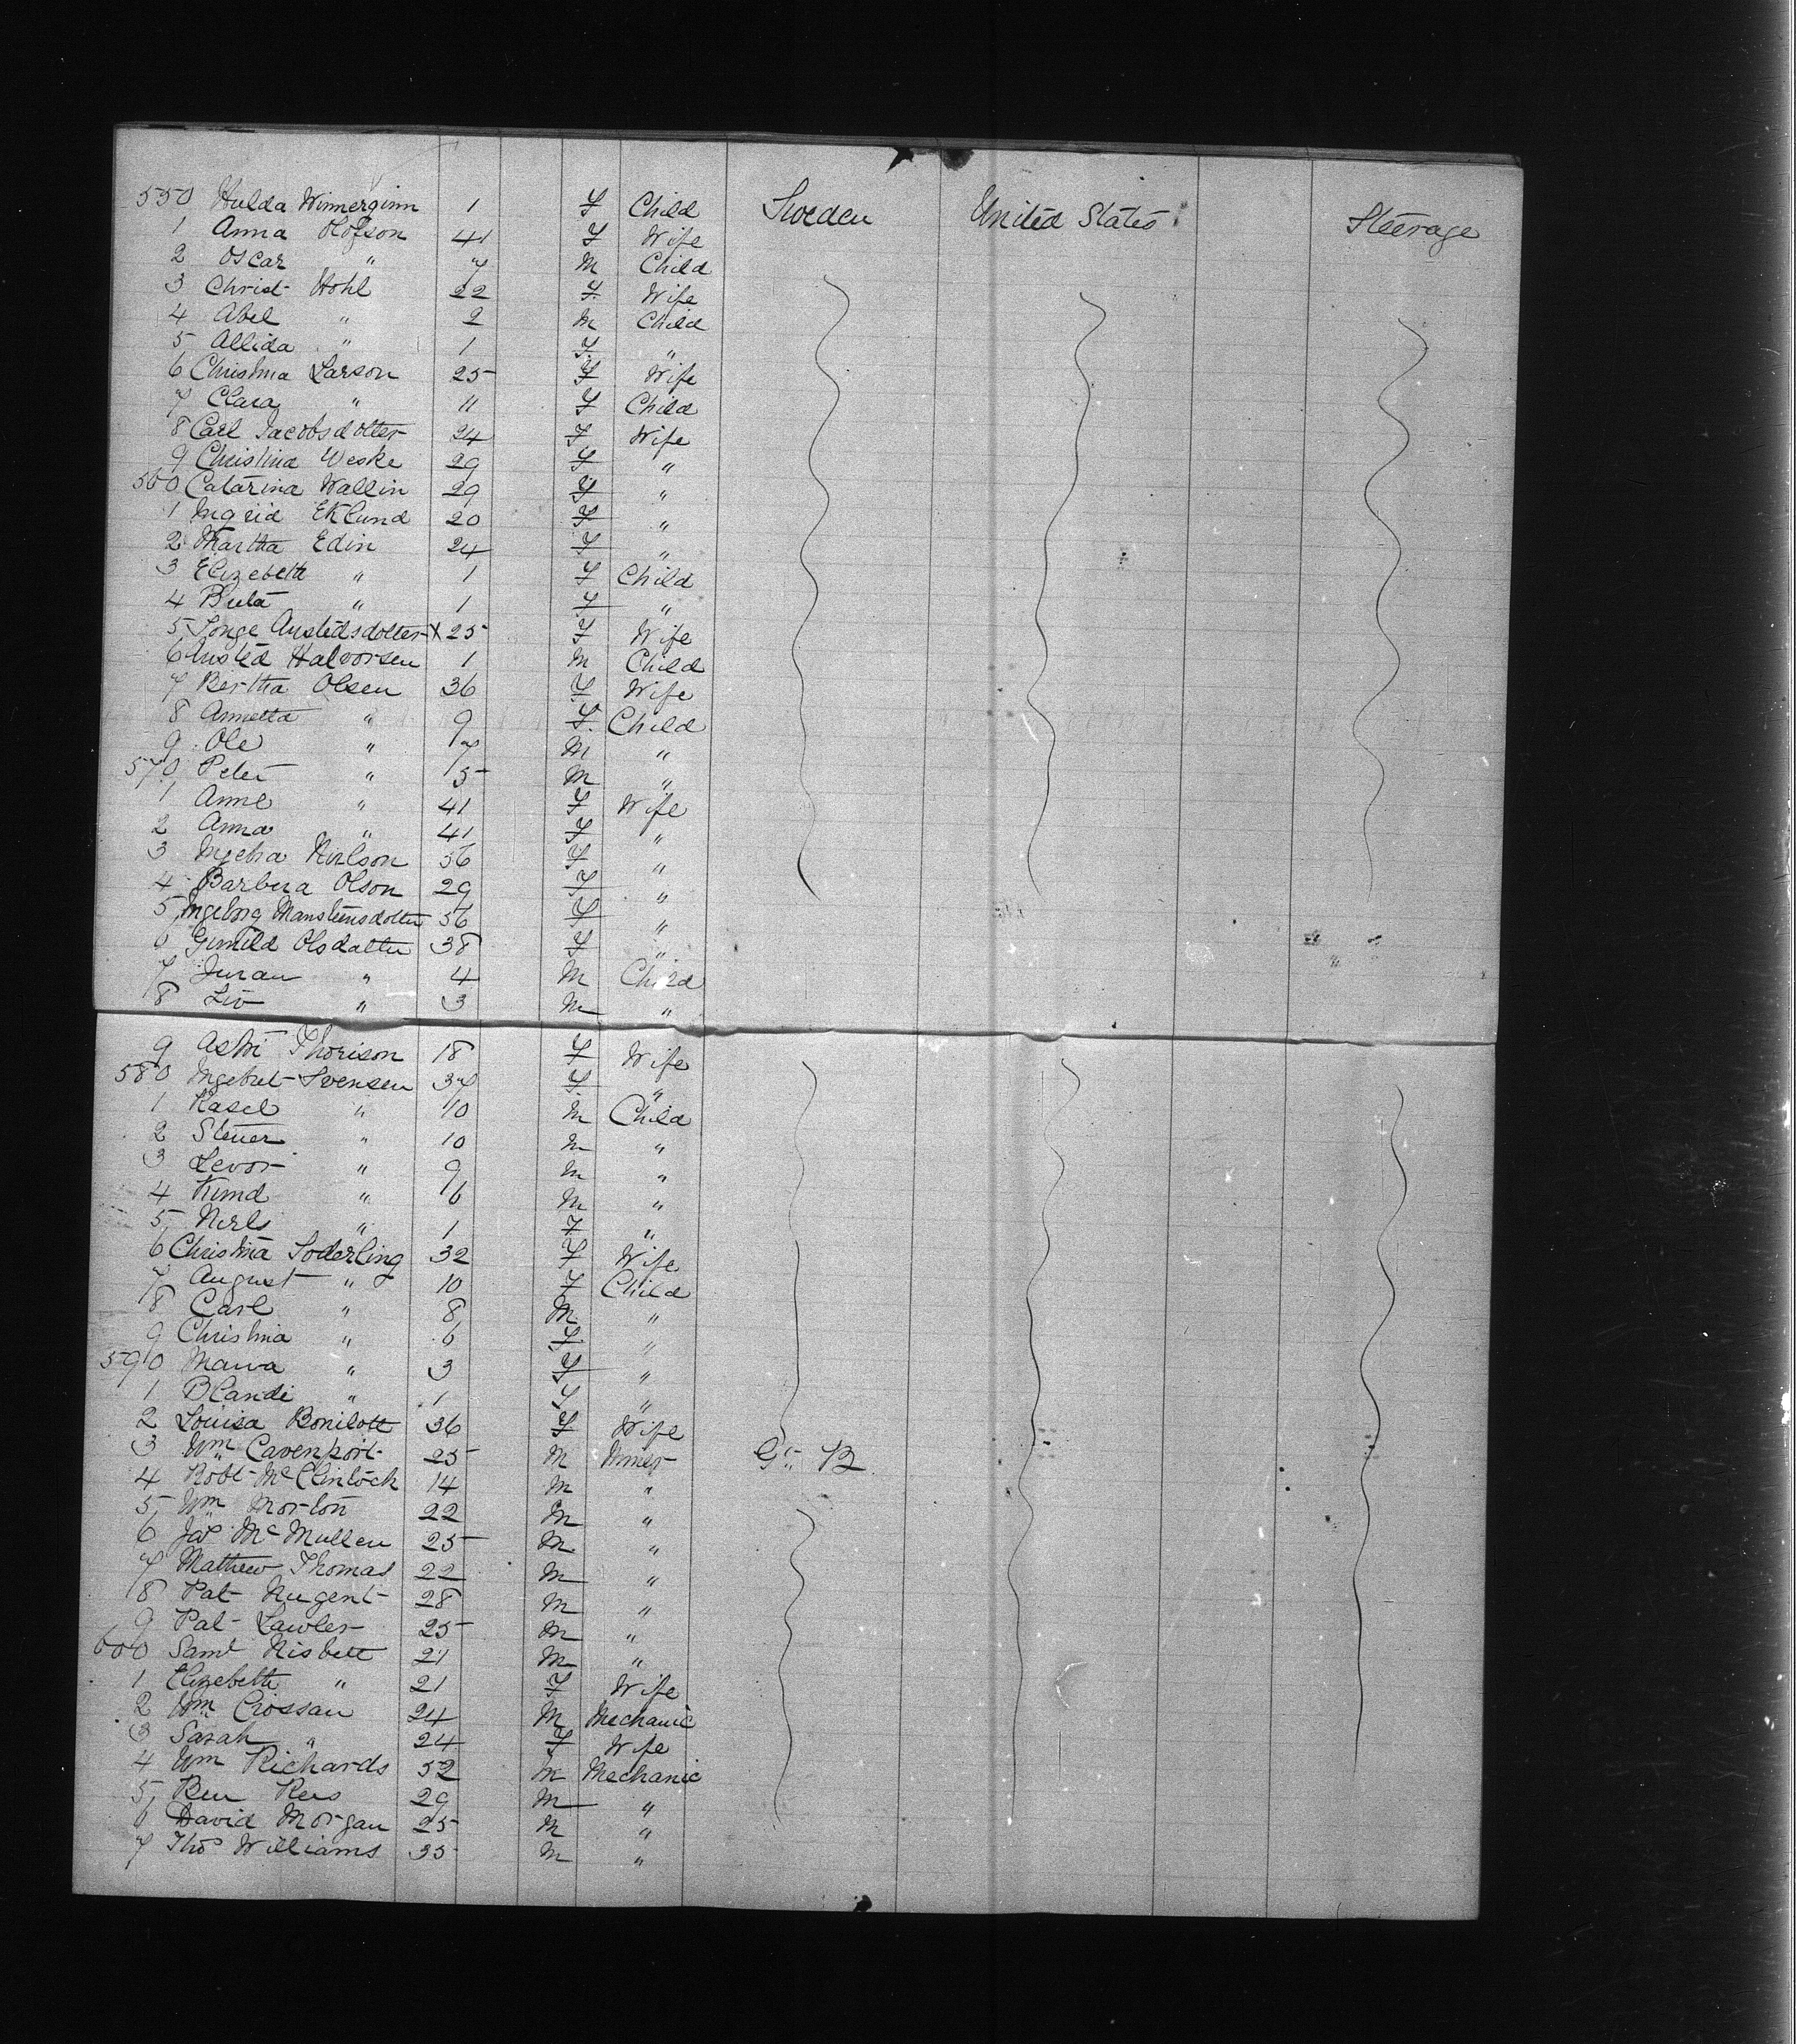 550 Hulda Winnerginn 1 F Child Sweden United States Steerage
1 Anna Olofson 41 F Wife
2 Oscar " 7 M Child
3 Christ Hohl 22 F Wife
4 Abel " 2 M Child
5 Allida " 1 F "
6 Christina Larson 25 F Wife
7 Clara " 11 F Child
8 Carl Jacobsdotter 24 F Wife
9 Christina Weske 29 F "
560 Catarina Wallin 29 F "
1 Ingrid Eklund 20 F "
2 Martha Edin 24 F "
3 Elizebeth " 1 F Child
4 Buta " 1 F "
5 Songe Austedsdotter X 25 F Wife
6 Austed Halvorsen 1 M Child
7 Bertha Olsen 36 F Wife
8 Annetta " 9 F Child
9 Ole " 7 M "
570 Peter " 5 M "
1 Anne " 41 F Wife
2 Anna " 41 F "
3 Ingebra Nielson 56 F "
4 Barbera Olson 29 F "
5 Ingeborg Manstensdotter 56 F "
6 Gunild Olsdatter 38 F "
7 Juran " 4 M Child
8 Liv " 3 M "
9 Astri Thorison 18 F Wife
580 Ingebret Svensen 37 F "
1 Rasel " 10 M Child
2 Stener " 10 M "
3 Levor " 9 M "
4 Knud " 6 M "
5 Nerls " 1 F "
6 Christina Soderling 32 F Wife
7 August " 10 F Child
8 Carl " 8 M "
9 Christina " 6 F "
590 Maria " 3 F "
1 Blandi " 1 F "
2 Louisa Bonilott 36 F Wife
3 Wm Cavenport 25 M Miner Gt B
4 Robt McClintock 14 M "
5 Wm Morton 22 M "
6 Jas McMullen 25 M "
7 Mathew Thomas 22 M "
8 Pat Nugent 28 M "
9 Pat Lawler 25 M "
600 Saml Nisbett 21 M "
1 Elizebeth " 21 F Wife
2 Wm Crossan 24 M Mechanic
3 Sarah " 24 F Wife
4 Wm Richards 52 M Mechanic
5 Ben Rees 29 M "
6 David Morgan 25 M "
7 Thos Williams 35 M "